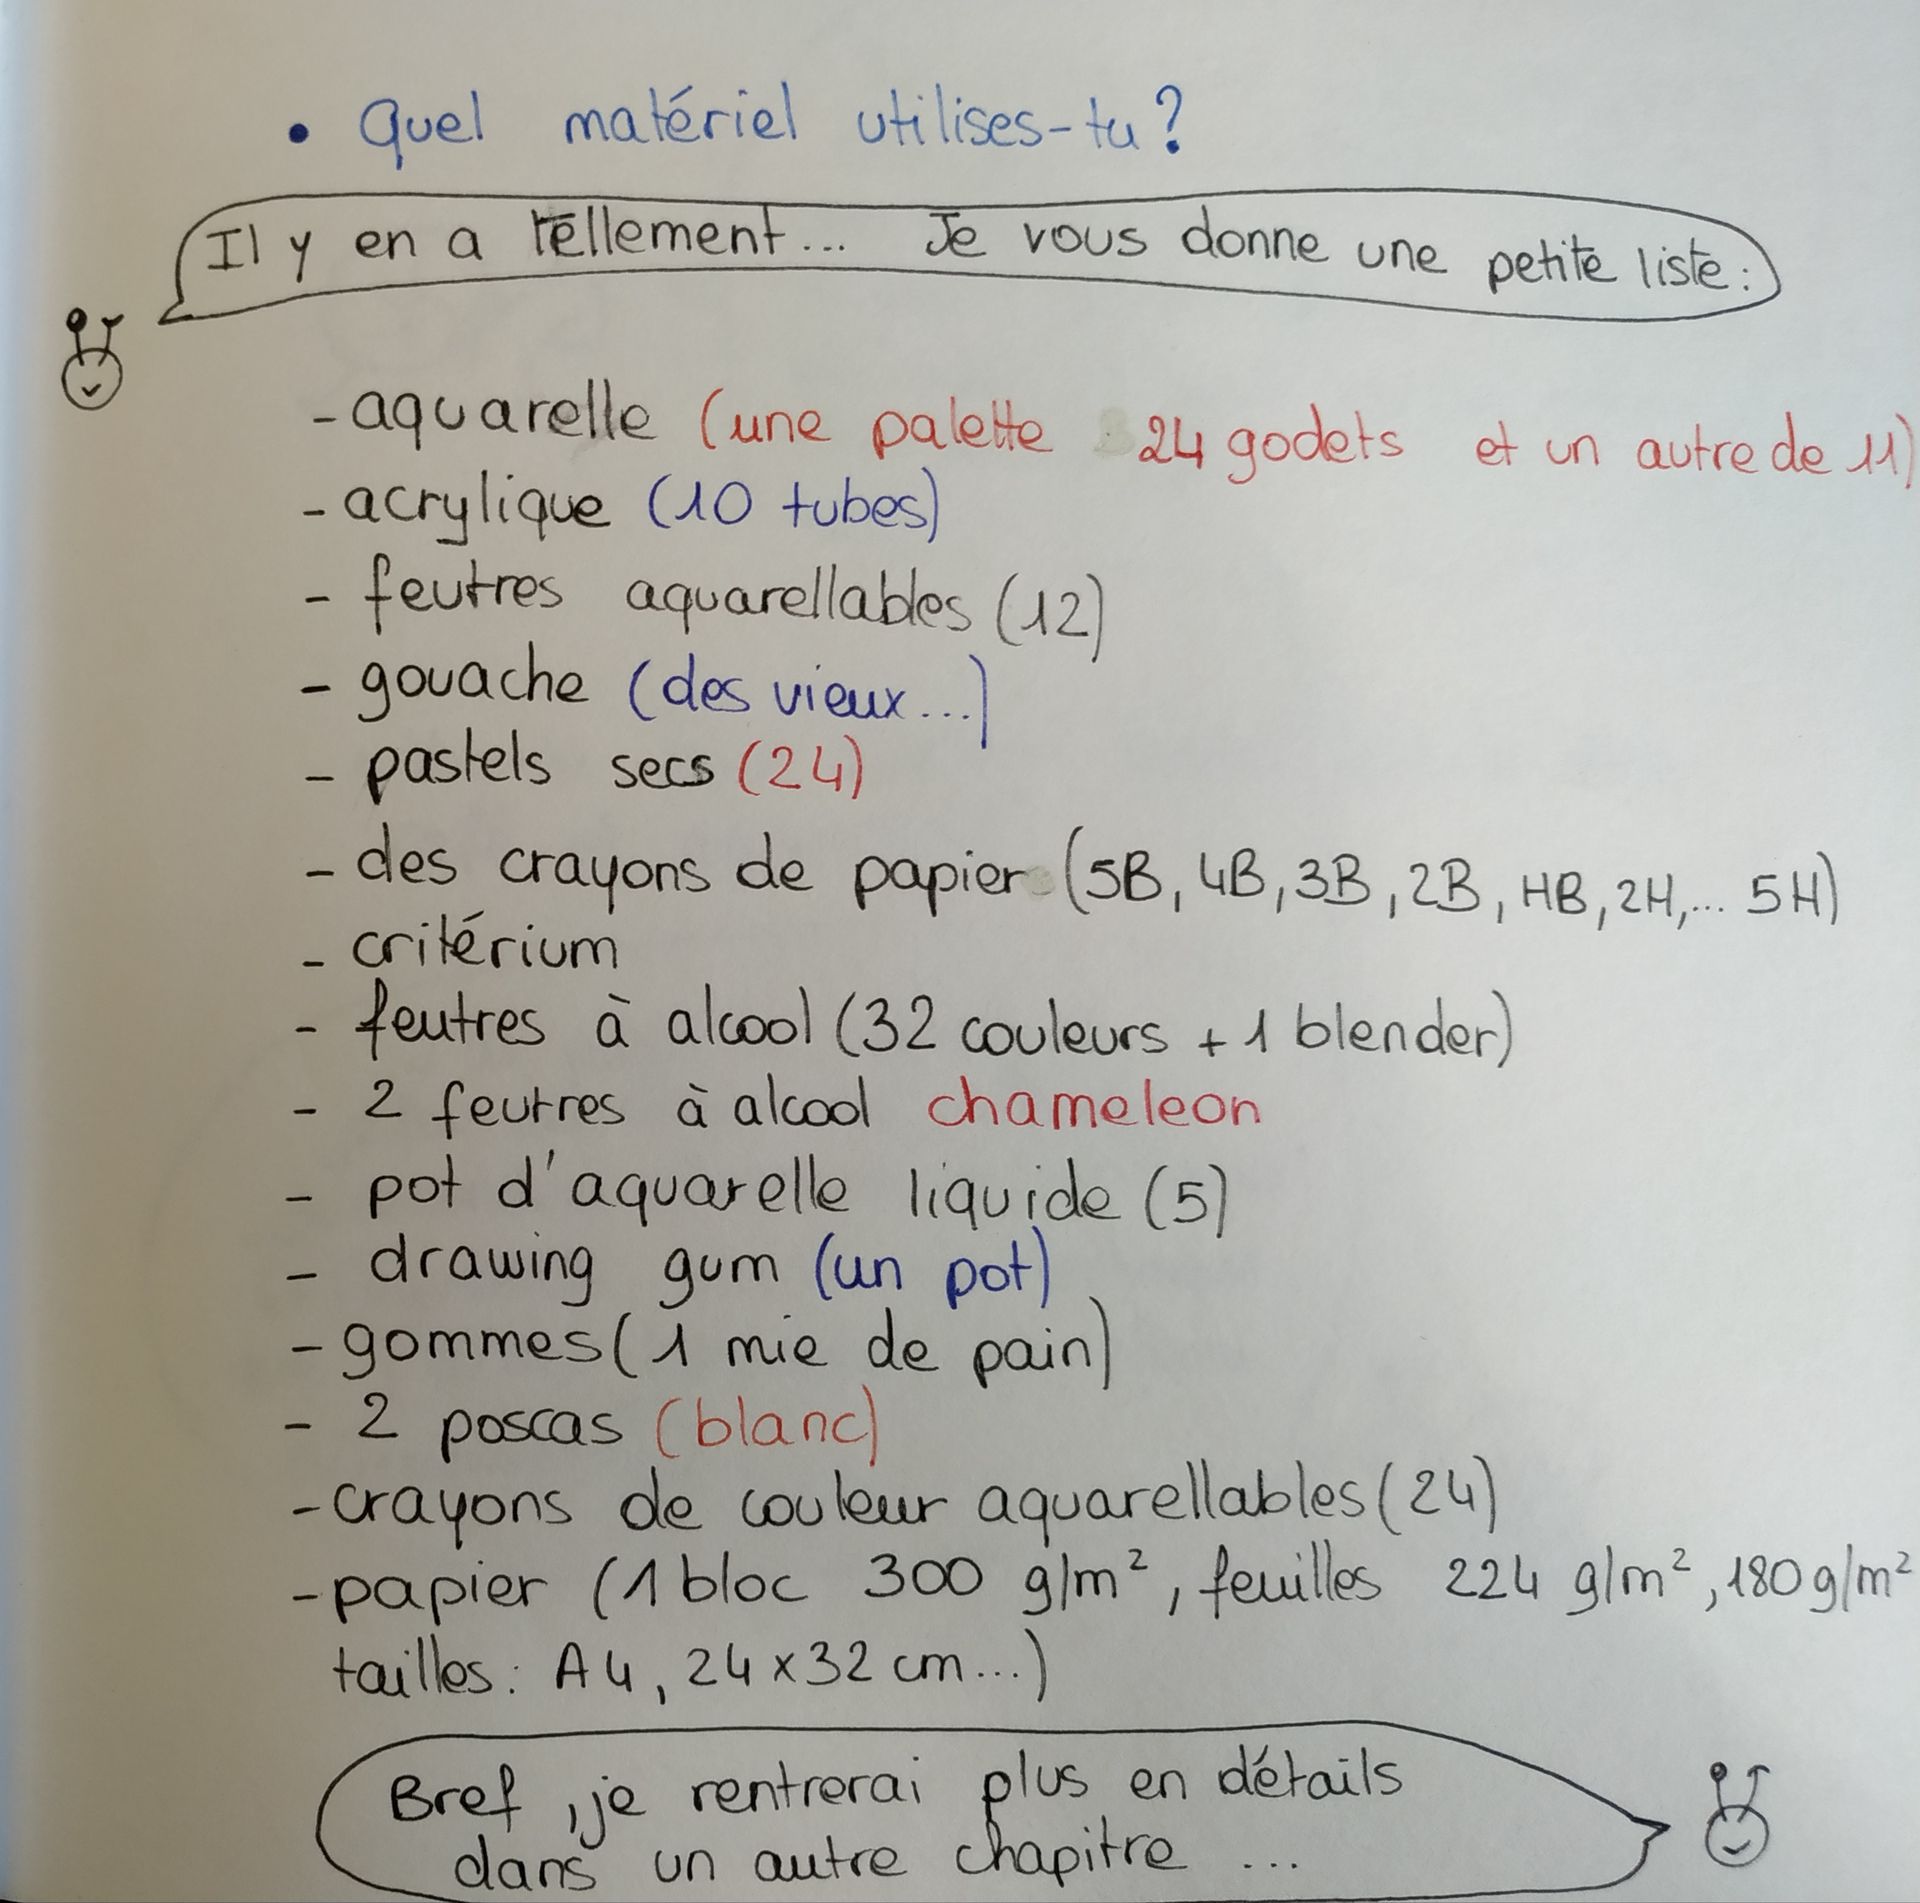 • Quel matériel utilises-tu ?
Il y en a tellement... Je vous donne une petite liste :
- aquarelle (une palette 24 godets et un autre de 11)
- acrylique (10 tubes)
- feutres aquarellables (12)
- gouache (des vieux...)
- pastels secs (24)
- des crayons de papier (5B, 4B, 3B, 2B, HB, 2H,... 5H)
- critérium
- feutres à alcool (32 couleurs + 1 blender)
- 2 feutres à alcool chameleon
- pot d'aquarelle liquide (5)
- drawing gum (un pot)
- gommes (1 mie de pain)
- 2 poscas (blanc)
- crayons de couleur aquarellables (24)
- papier (1 bloc 300 g/m², feuilles 224 g/m², 180 g/m²
tailles : A4, 24 x 32 cm...)
Bref, je rentrerai plus en détails
dans un autre chapitre ...